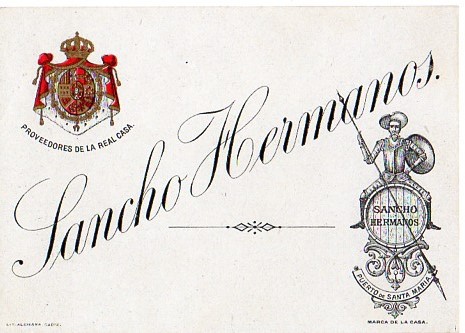 PROVEEDORES DE LA REAL CASA.
Sancho Hermanos.
SANCHO
HERMANOS
PUERTO DE SANTA MARIA
MARCA DE LA CASA.
LIT. ALEMANA (CADIZ).